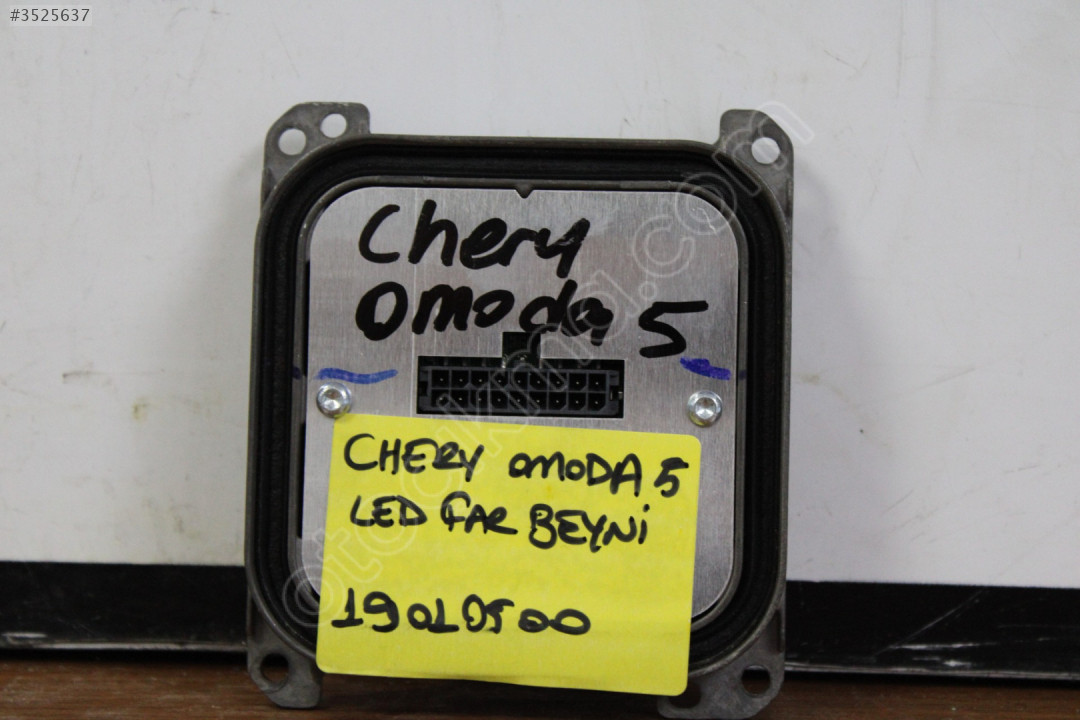 #3525637
Chery
Omoda 5
CHERY OMODA 5
LED FAR BEYNi
19010500
otocikma.com